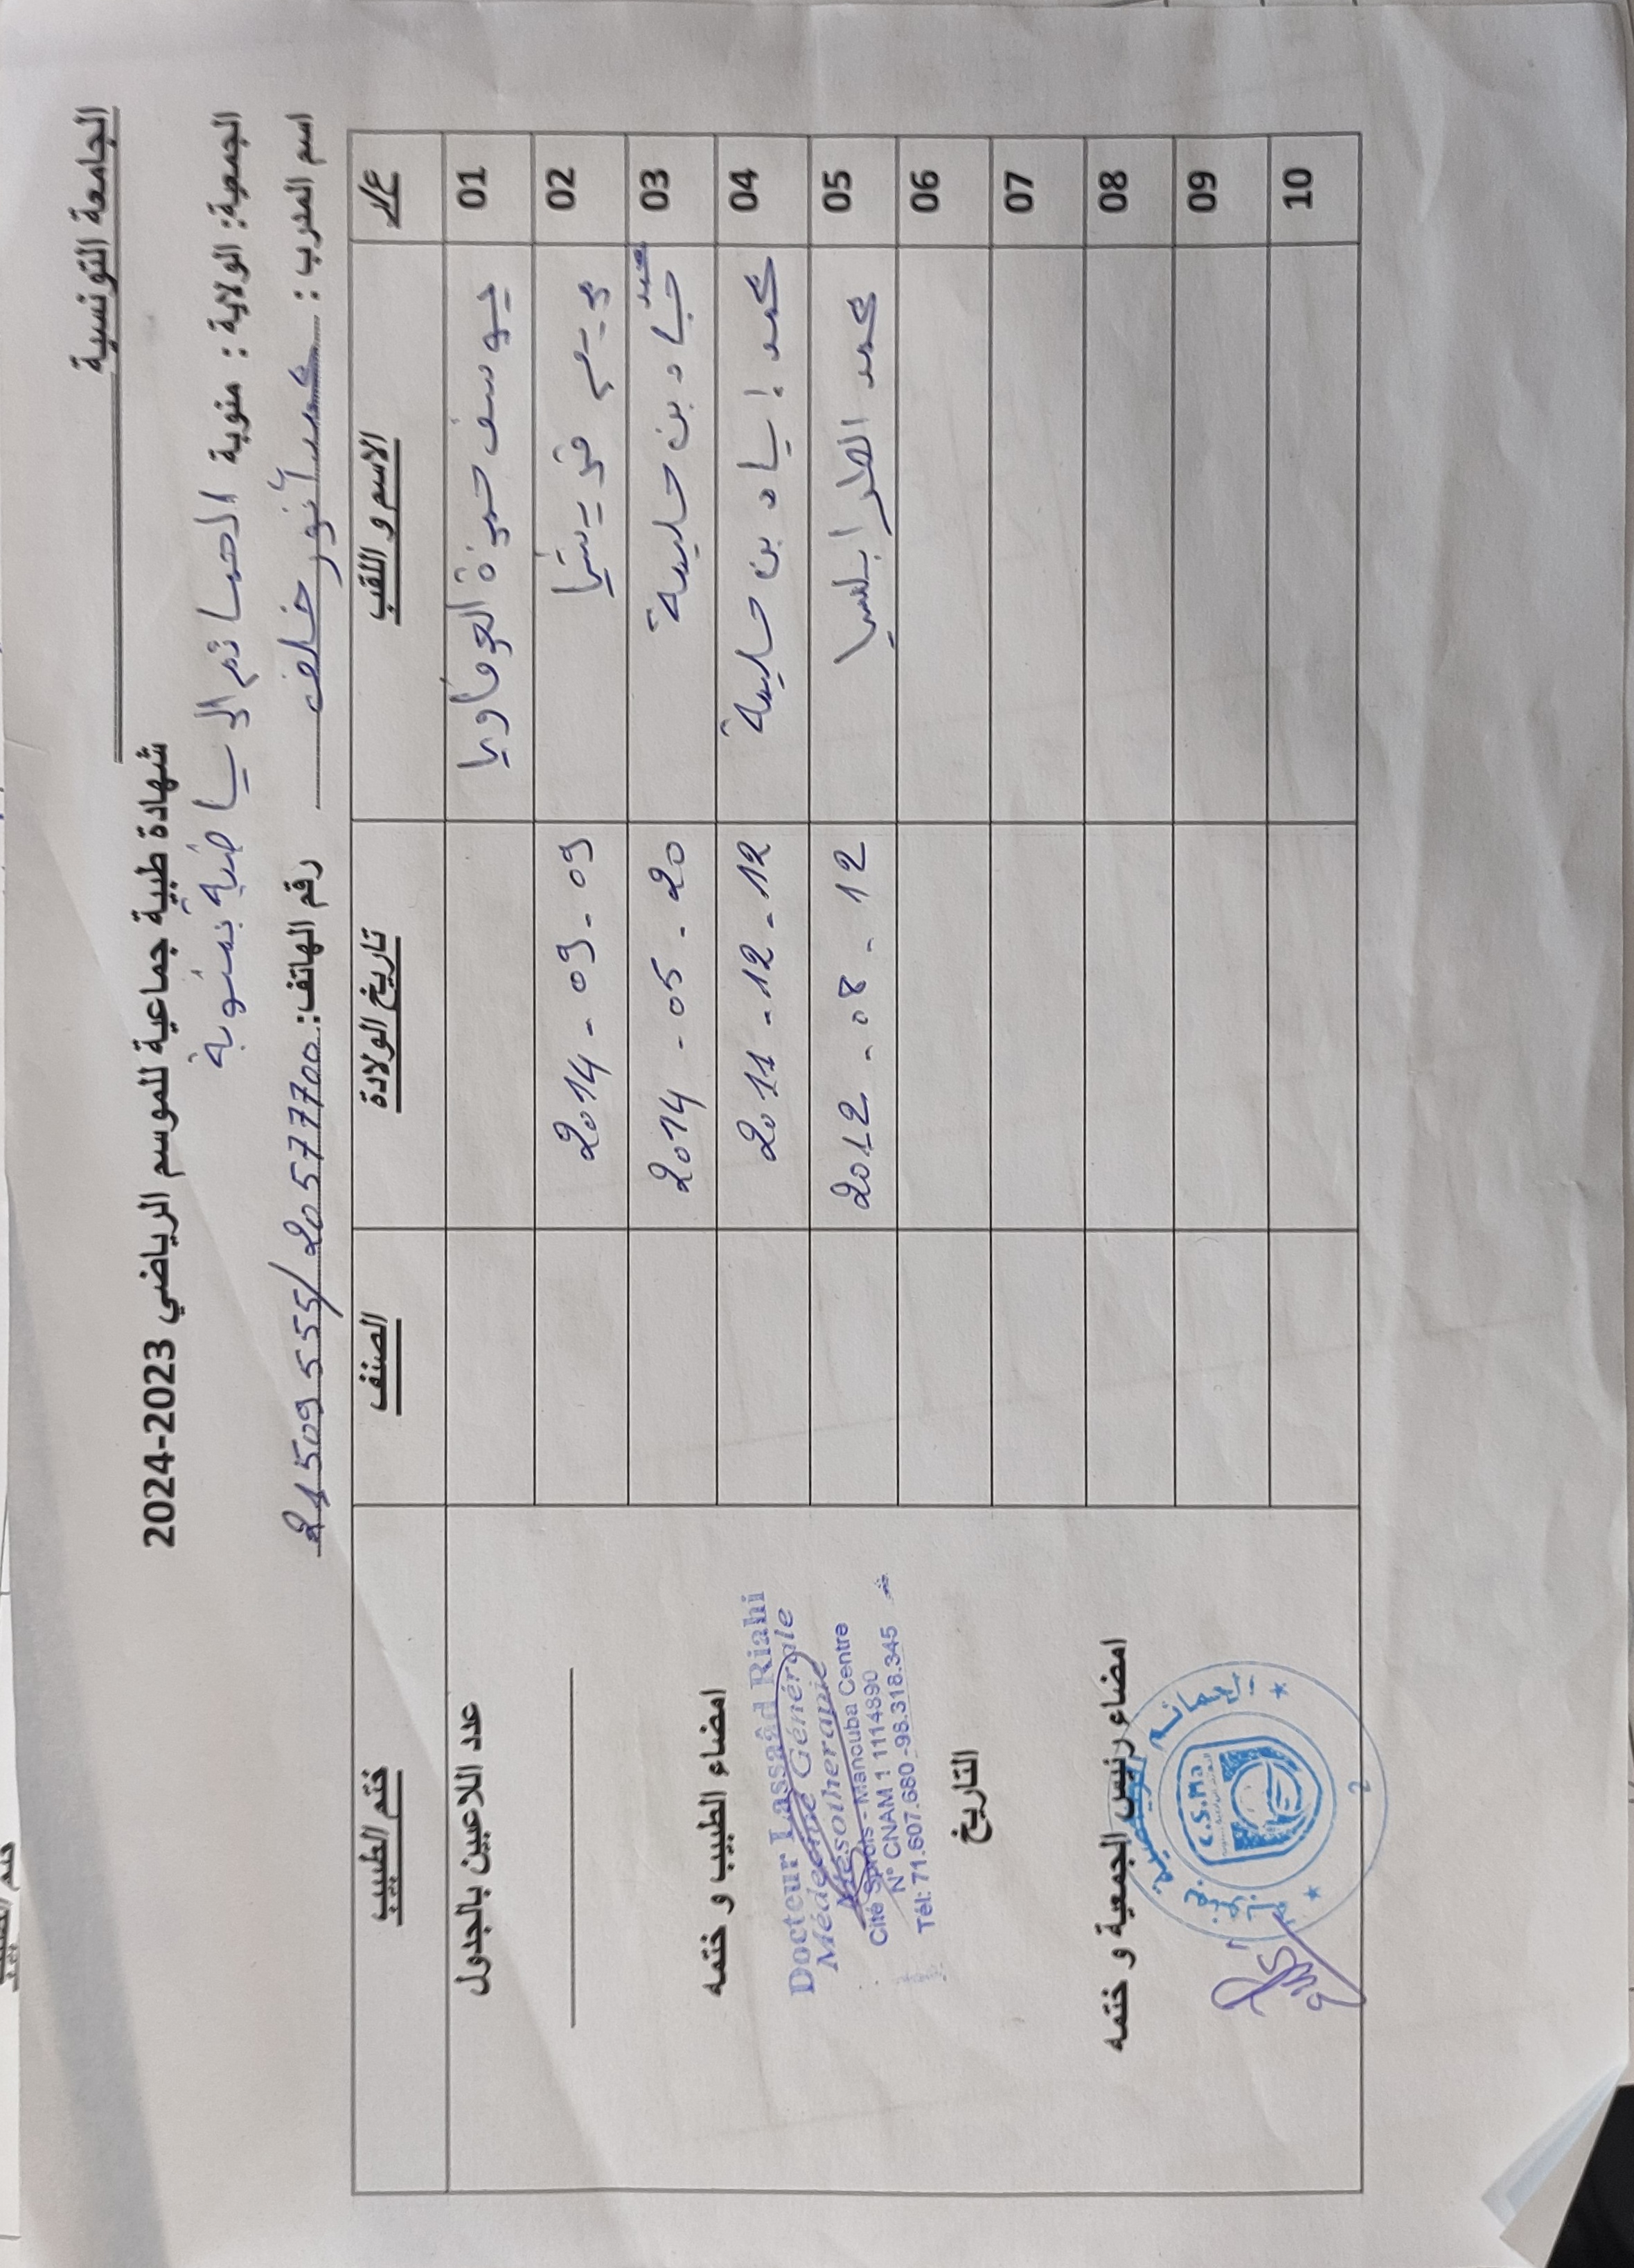 الجامعة التونسية
شهادة طبية جماعية للموسم الرياضي 2023-2024
الجمعية: الولاية : منوبة الصاتم الرياضية بمنوبة
اسم المدرب : محمد أنور خلف رقم الهاتف: 20577700 / 21509555
ع/ر الاسم و اللقب تاريخ الولادة الصنف ختم الطبيب
01 يوسف حمزة العرفاوي
02 مريم قريشي 2014 - 09 - 09
03 محمد جياد بن حليمة 2014 - 05 - 20
04 محمد إياد بن حليمة 2011 - 12 - 12
05 محمد الطرابلسي 2012 - 08 - 12
06
07
08
09
10
عدد اللاعبين بالجدول
امضاء الطبيب و ختمه
Docteur Lassaâd Riahi
Médecine Générale
Mésothérapie
Cité Sprols - Manouba Centre
N° CNAM 1 1114890
Tél: 71.607.680 -98.318.345
التاريخ
امضاء رئيس الجمعية و ختمه
C.S.Ma
2